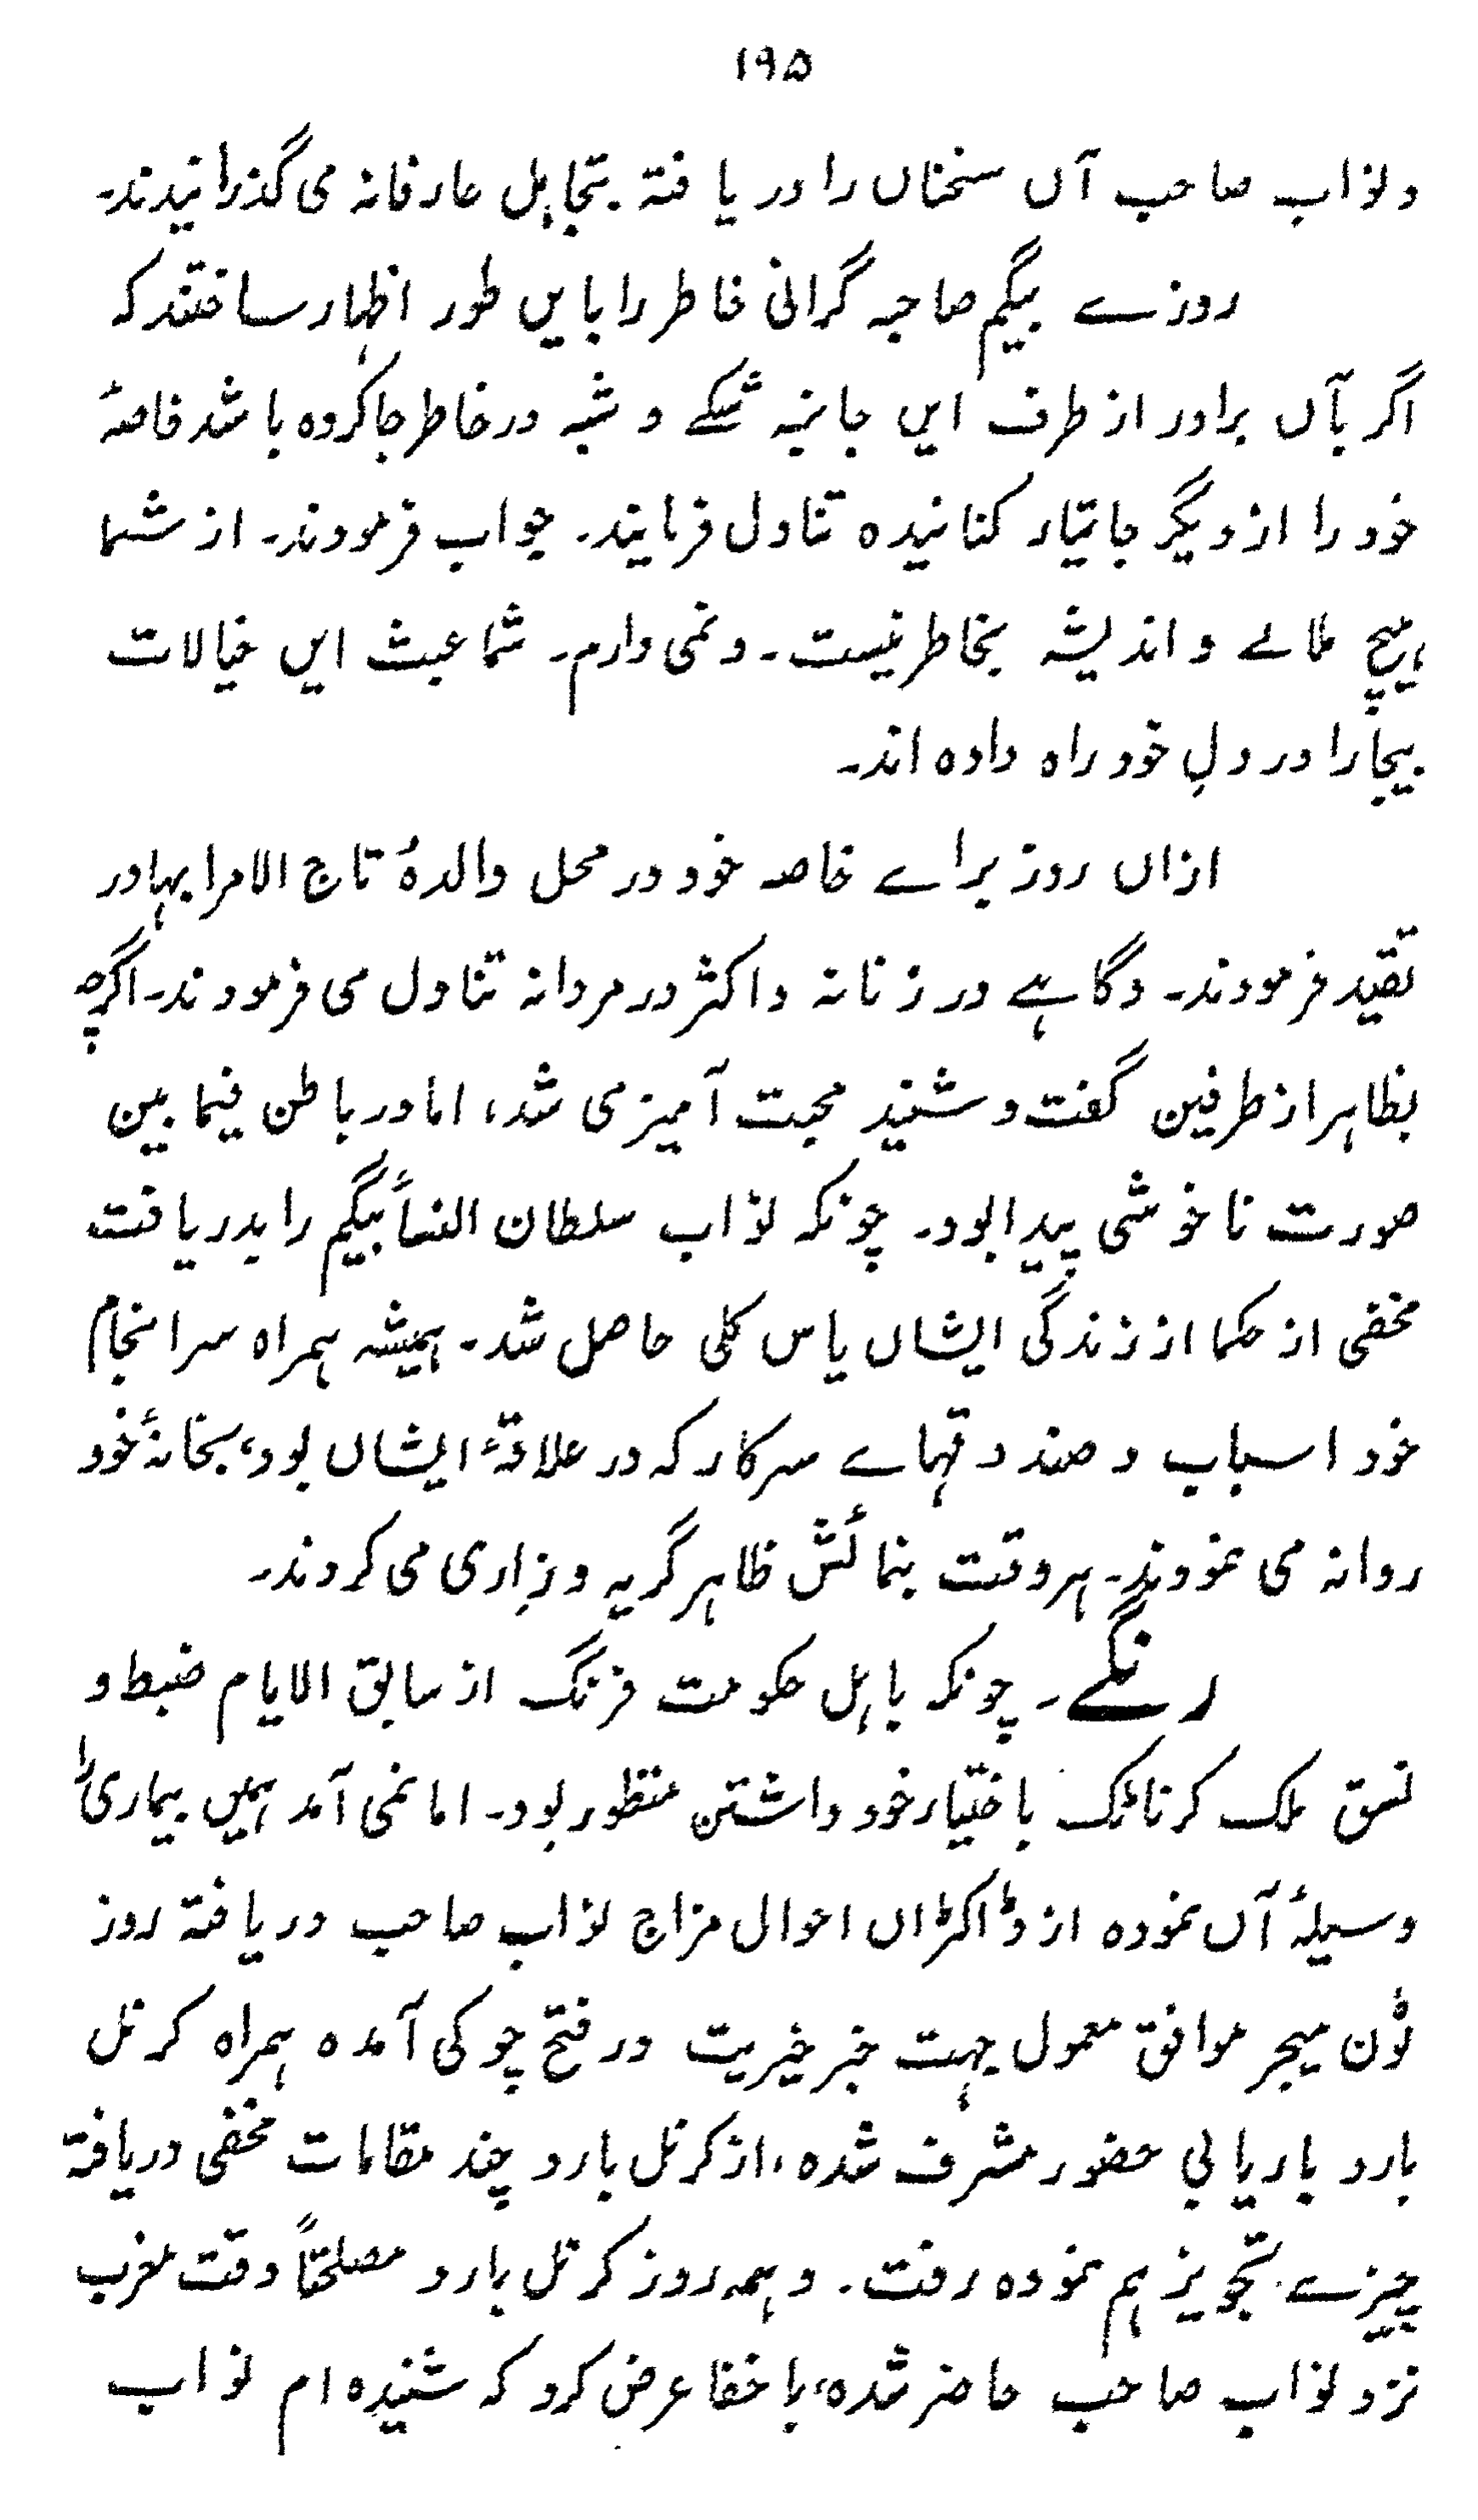 ۱۹۵
و نواب صاحب آں سخناں را دریافتہ بتجاہل عارفانہ می گذرانیدند۔
روزے بیگم صاحبہ گرانی خاطر را بایں طور اظہار ساختند کہ
اگر بآں برادر از طرف ایں جانبہ شکے و شبہ در خاطر جا کردہ باشد خاصۂ
خود را از دیگر جا تیار کنانیدہ تناول فرمایند۔ جواب فرمودند۔ از شما
ہیچ ملالے و اندیشہ بخاطر نیست۔ و نمی دارم۔ شما عبث ایں خیالات
بیجا را در دلِ خود راہ دادہ اند۔
ازاں روز براے خاصہ خود در محل والدۂ تاج الامرا بہادر
تقید فرمودند۔ و گاہے در زنانہ و اکثر در مردانہ تناول می فرمودند۔ اگرچہ
بظاہر از طرفین گفت و شنید محبت آمیز می شد، اما در باطن فیما بین
صورت ناخوشی پیدا بود۔ چونکہ نواب سلطان النسأ بیگم را بدریافت
مخفی از حکما از زندگی ایشاں یاس کلی حاصل شد۔ ہمیشہ ہمراہ سرانجام
خود اسباب و صندوقہاے سرکار کہ در علاقۂ ایشاں بود، بخانۂ خود
روانہ می نمودند۔ ہر وقت بنمائش ظاہر گریہ و زاری می کردند۔
رنگے۔ چونکہ باہل حکومت فرنگ از سابق الایام ضبط و
نسق ملک کرناٹک باختیار خود داشتن منظور بود۔ اما نمی آمد ہمیں بیماری را
وسیلۂ آں نمودہ از ڈاکٹراں احوال مزاج نواب صاحب دریافتہ روز
ٹون میجر موافق معمول جہت خبر خیریت در فتح چوکی آمدہ ہمراہ کرنل
بارو باریابی حضور مشرف شدہ، از کرنل بارو چند مقامات مخفی دریافتہ
چیزے تجویز ہم نمودہ رفت۔ و ہمہ روز کرنل بارو مصلحتاً وقت مغرب
نزد نواب صاحب حاضر شدہ، باخفا عرض کرد کہ شنیدہ ام نواب